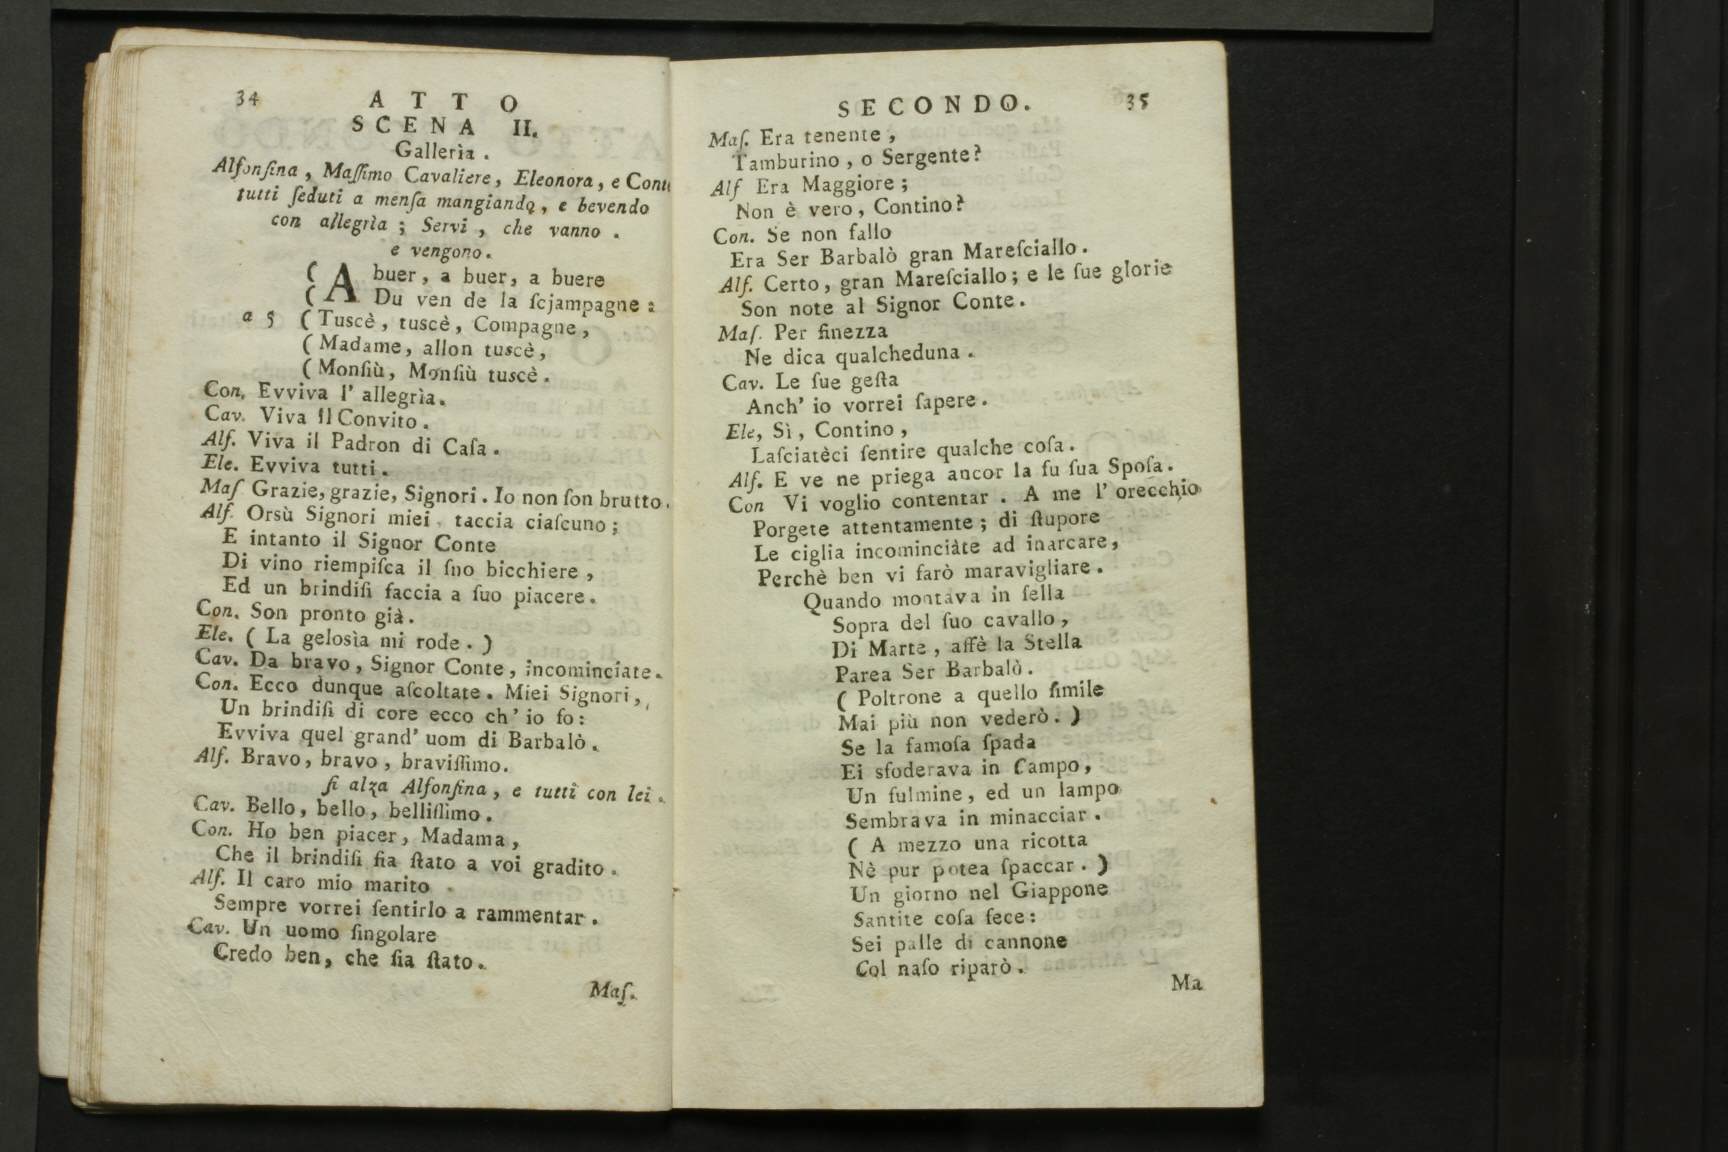 34
ATTO
SCENA II.
Gallerìa.
Alfonſina, Maſſimo Cavaliere, Eleonora, e Conte
tutti ſeduti a menſa mangiando, e bevendo
con allegrìa; Servi, che vanno.
e vengono.
( A buer, a buer, a buere
( Du ven de la ſcjampagne:
a 5 ( Tuscè, tuscè, Compagne,
( Madame, allon tuscè,
( Monſiù, Monſiù tuscè.
Con. Evviva l' allegrìa.
Cav. Viva il Convito.
Alf. Viva il Padron di Caſa.
Ele. Evviva tutti.
Maſ Grazie, grazie, Signori. Io non ſon brutto.
Alf. Orsù Signori miei taccia ciaſcuno;
E intanto il Signor Conte
Di vino riempiſca il ſno bicchiere,
Ed un brindiſi faccia a ſuo piacere.
Con. Son pronto già.
Ele. ( La gelosìa mi rode. )
Cav. Da bravo, Signor Conte, incominciate.
Con. Ecco dunque aſcoltate. Miei Signori,
Un brindiſi di core ecco ch' io fo:
Evviva quel grand' uom di Barbalò.
Alf. Bravo, bravo, braviſſimo.
ſi alza Alfonſina, e tutti con lei.
Cav. Bello, bello, belliſſimo.
Con. Ho ben piacer, Madama,
Che il brindiſi ſia ſtato a voi gradito.
Alf. Il caro mio marito
Sempre vorrei ſentirlo a rammentar.
Cav. Un uomo ſingolare
Credo ben, che ſia ſtato.
Maſ.
SECONDO. 35
Maſ. Era tenente,
Tamburino, o Sergente?
Alf Era Maggiore;
Non è vero, Contino?
Con. Se non fallo
Era Ser Barbalò gran Mareſciallo.
Alf. Certo, gran Mareſciallo; e le ſue glorie
Son note al Signor Conte.
Maſ. Per finezza
Ne dica qualcheduna.
Cav. Le ſue geſta
Anch' io vorrei ſapere.
Ele, Sì, Contino,
Laſciatèci ſentire qualche coſa.
Alf. E ve ne priega ancor la fu ſua Spoſa.
Con Vi voglio contentar. A me l' orecchio
Porgete attentamente; di ſtupore
Le ciglia incominciàte ad inarcare,
Perchè ben vi farò maravigliare.
Quando montava in ſella
Sopra del ſuo cavallo,
Di Marte, affè la Stella
Parea Ser Barbalò.
( Poltrone a quello ſimile
Mai più non vederò. )
Se la famoſa ſpada
Ei sfoderava in Campo,
Un fulmine, ed un lampo
Sembrava in minacciar.
( A mezzo una ricotta
Nè pur potea ſpaccar. )
Un giorno nel Giappone
Santite coſa fece:
Sei palle di cannone
Col naſo riparò.
Ma